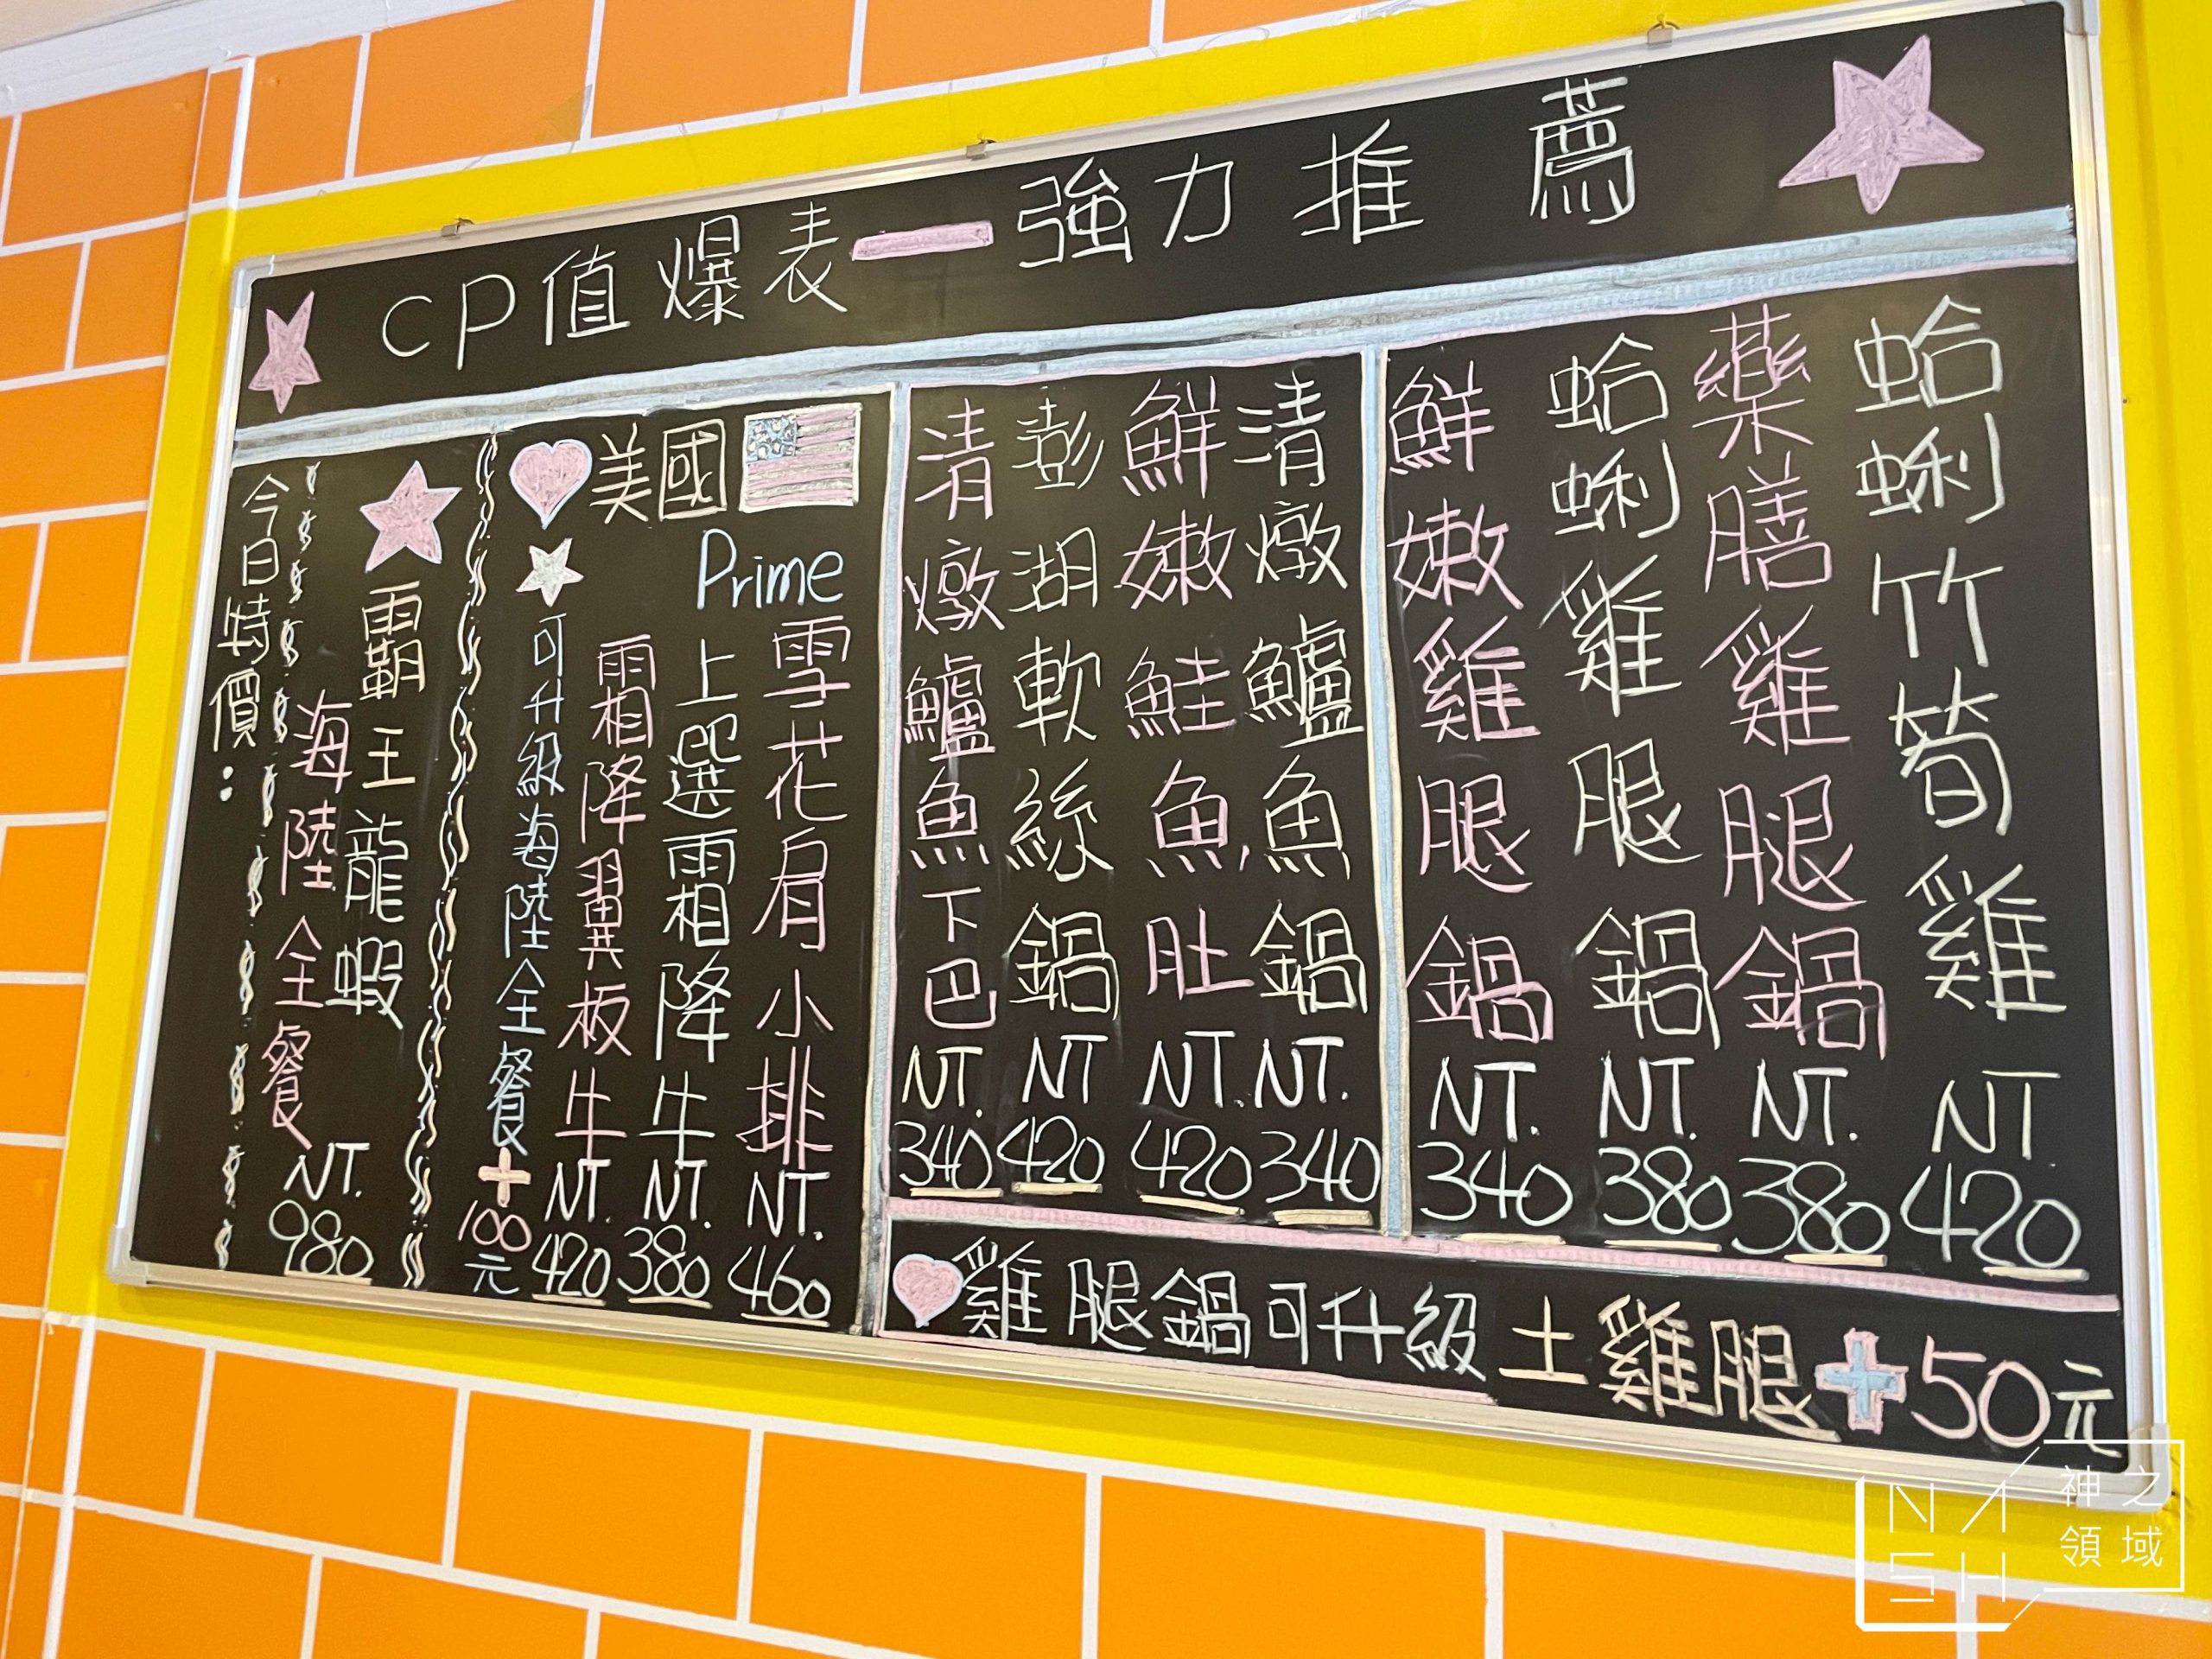 CP值爆表－強力推薦
蛤蜊竹筍雞 NT 420
藥膳雞腿鍋 NT. 380
蛤蜊雞腿鍋 NT. 380
鮮嫩雞腿鍋 NT. 340
清燉鱸魚鍋 NT. 340
鮮嫩鮭魚肚 NT. 420
澎湖軟絲鍋 NT 420
清燉鱸魚下巴 NT. 340
雞腿鍋可升級土雞腿+50元
美國
Prime
雪花肩小排 NT. 460
上選霜降牛 NT. 380
霜降翼板牛 NT. 420
可升級海陸全餐+100元
霸王龍蝦
海陸全餐 NT. 980
今日特價：
NASH
神之領域